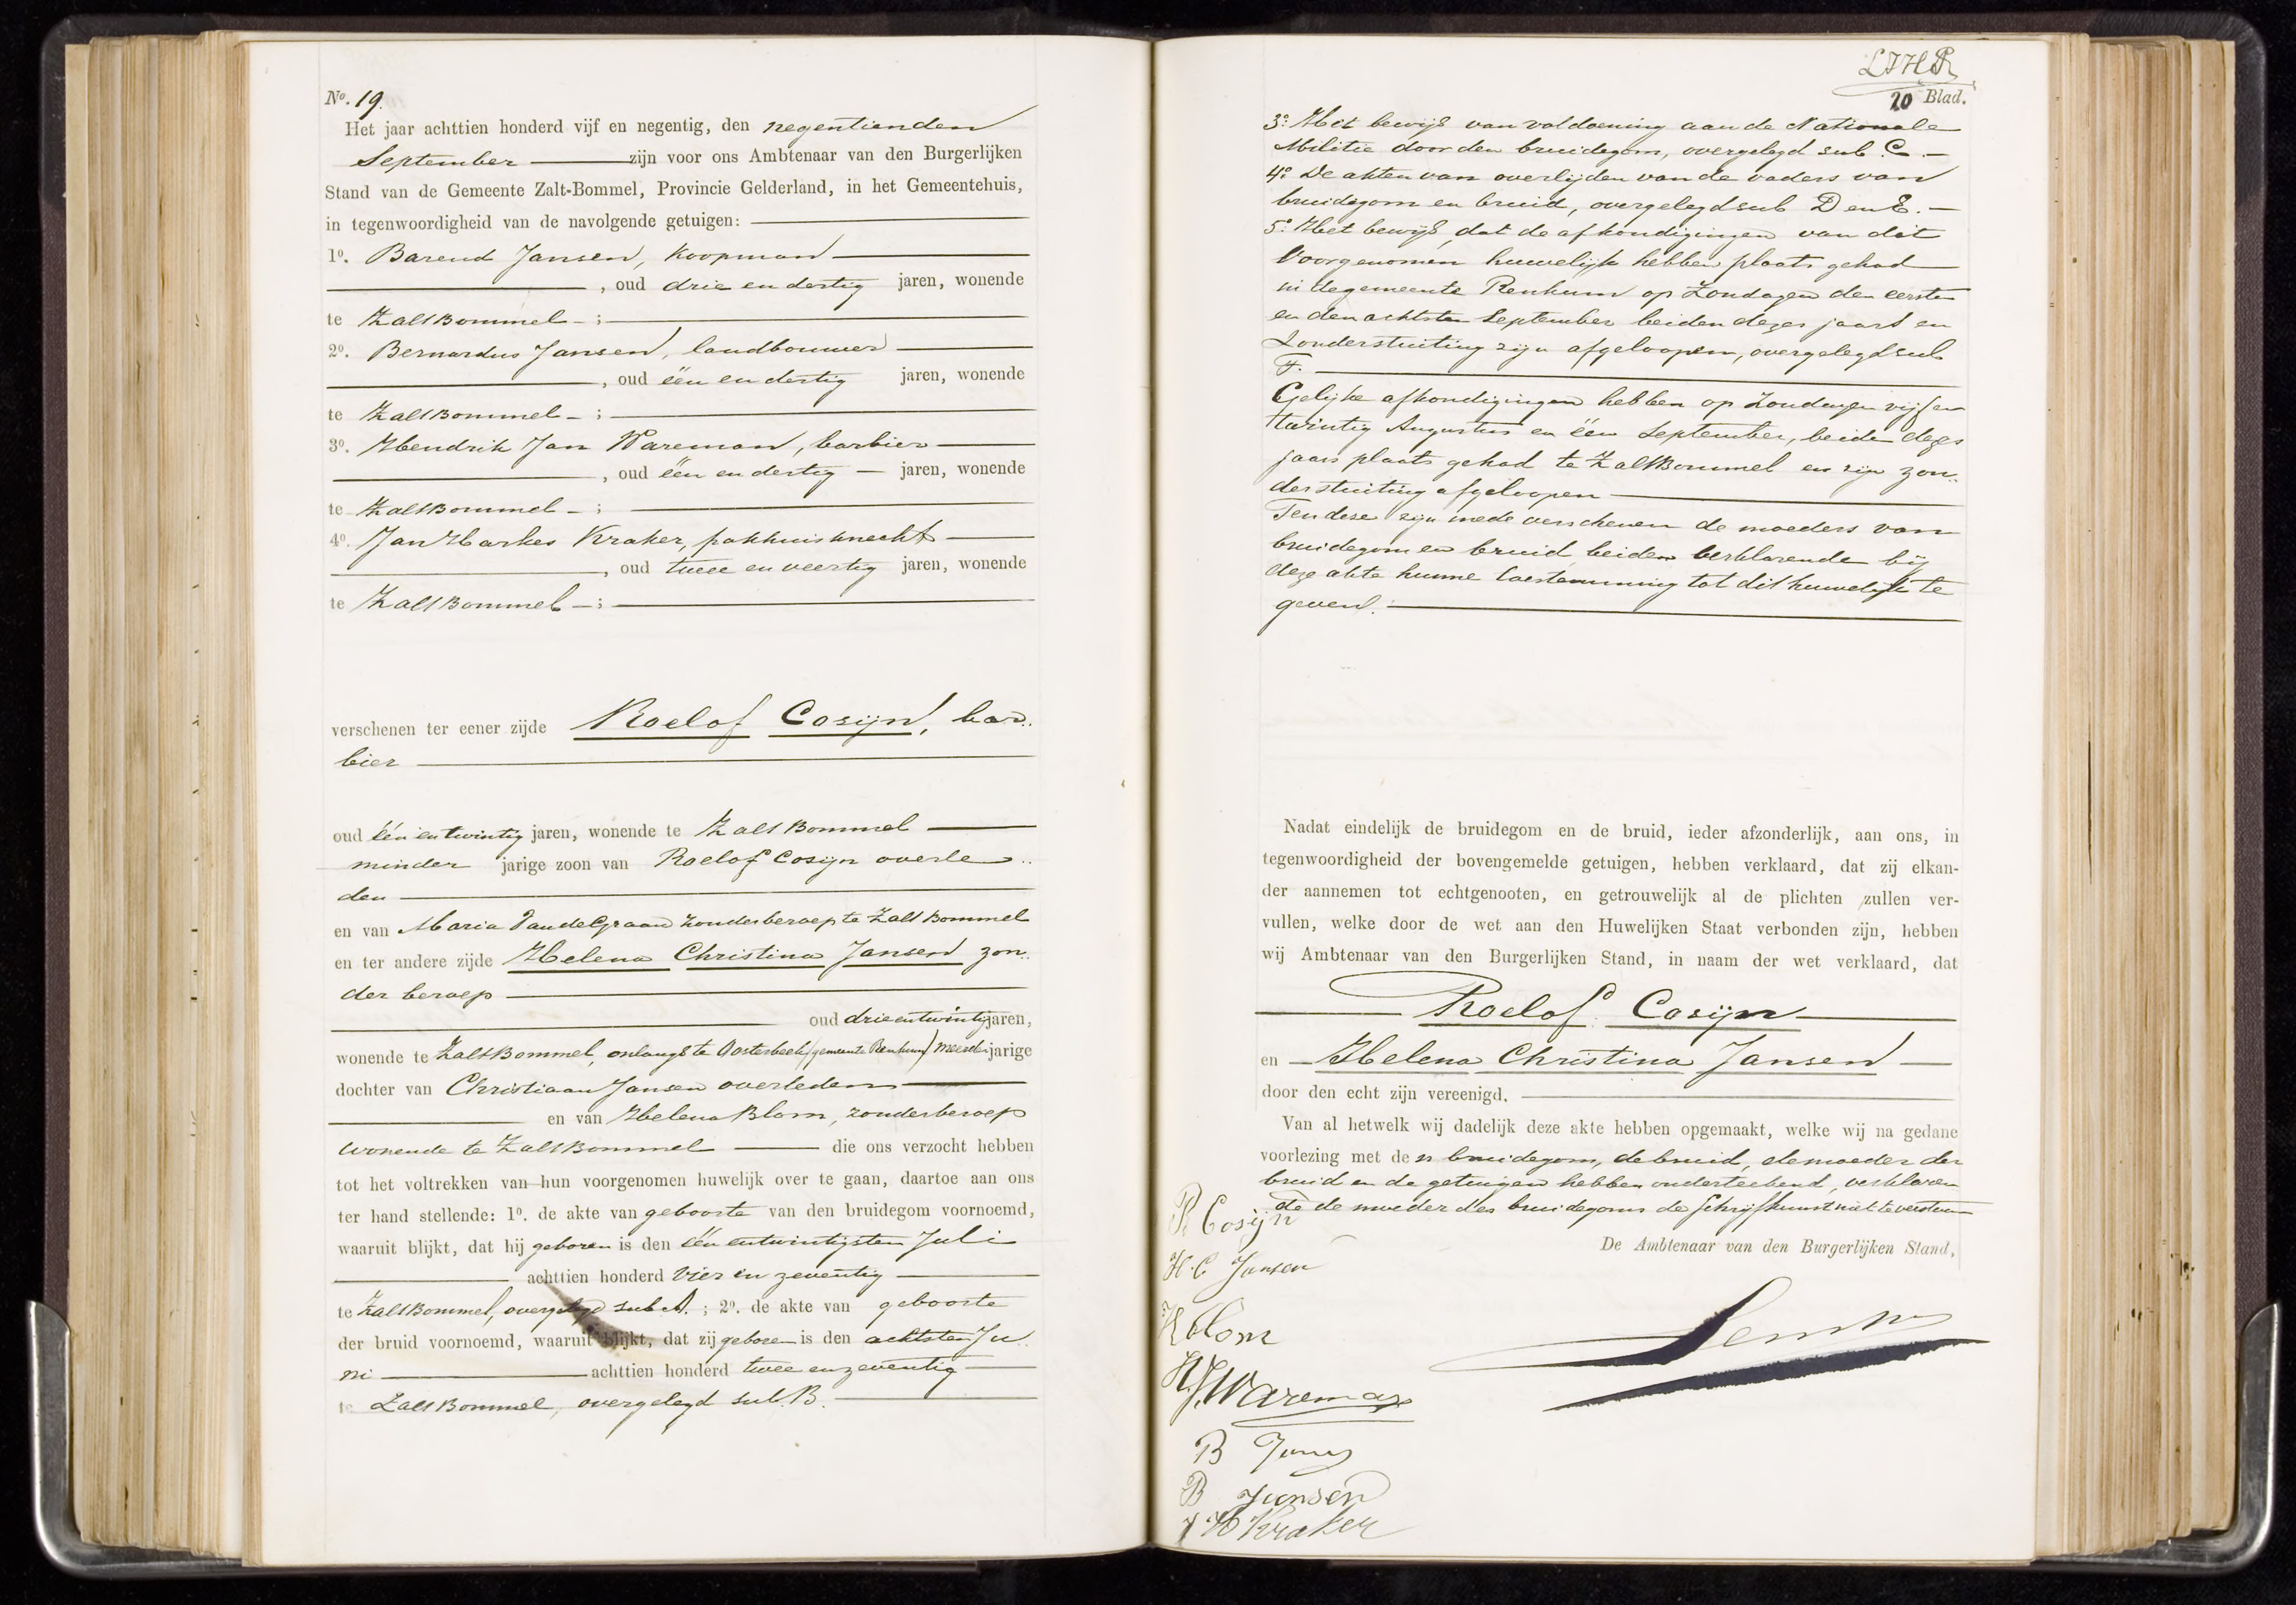 No. 19.
Het jaar achttien honderd vijf en negentig, den negentienden
September zijn voor ons Ambtenaar van den Burgerlijken
Stand van de Gemeente Zalt-Bommel, Provincie Gelderland, in het Gemeentehuis,
in tegenwoordigheid van de navolgende getuigen:
1o. Barend Jansen, koopman
, oud drie en dertig jaren, wonende
te ZaltBommel - ;
2o. Bernardus Jansen, landbouwer
, oud één en dertig jaren, wonende
te ZaltBommel - ;
3o. Hendrik Jan Wareman, barbier
, oud één en dertig jaren, wonende
te ZaltBommel - ;
4o. Jan Harkes Kraker, pakhuisknecht
, oud twee en veertig jaren, wonende
te ZaltBommel - ;
verschenen ter eener zijde Roelof Cosijn, bar..
bier
oud één en twintig jaren, wonende te ZaltBommel
minder jarige zoon van Roelof Cosijn overle..
den
en van Maria van de Graan zonder beroep te ZaltBommel
en ter andere zijde Helena Christina Jansen zon..
der beroep
oud drie en twintig jaren,
wonende te ZaltBommel, onlangs te Oosterbeek (gemeente Renkum) meerderjarige
dochter van Christiaan Jansen overleden
en van Helena Blom, zonder beroep
wonende te ZaltBommel die ons verzocht hebben
tot het voltrekken van hun voorgenomen huwelijk over te gaan, daartoe aan ons
ter hand stellende: 1o. de akte van geboorte van den bruidegom voornoemd,
waaruit blijkt, dat hij geboren is den één entwintigsten Juli
achttien honderd vier en zeventig
te ZaltBommel, overgelegd sub A. ; 2o. de akte van geboorte
der bruid voornoemd, waaruit blijkt, dat zij geboren is den achtsten Ju..
ni achttien honderd twee en zeventig
te ZaltBommel, overgelegd sub. B.
20 Blad.
3o. Het bewijs van voldoening aan de Nationale
Militie door den bruidegom, overgelegd sub. C. -
4o. De akten van overlijden van de vaders van
bruidegom en bruid, overgelegd sub D en E. -
5o. Het bewijs, dat de afkondigingen van dit
voorgenomen huwelijk hebben plaats gehad
in de gemeente Renkum op Zondagen den eersten
en den achtsten September beiden dezes jaars en
zonder stuiting zijn afgeloopen, overgelegd sub
F.
Gelijke afkondigingen hebben op Zondagen vijf en
twintig Augustus en één September, beiden dezes
jaars plaats gehad te ZaltBommel en zijn zon..
der stuiting afgeloopen
Ten deze zijn mede verschenen de moeders van
bruidegom en bruid, beiden verklarende bij
deze akte hunne toestemming tot dit huwelijk te
geven.
Nadat eindelijk de bruidegom en de bruid, ieder afzonderlijk, aan ons, in
tegenwoordigheid der bovengemelde getuigen, hebben verklaard, dat zij elkan-
der aannemen tot echtgenooten, en getrouwelijk al de plichten zullen ver-
vullen, welke door de wet aan den Huwelijken Staat verbonden zijn, hebben
wij Ambtenaar van den Burgerlijken Stand, in naam der wet verklaard, dat
Roelof Cosijn
en Helena Christina Jansen
door den echt zijn vereenigd.
Van al hetwelk wij dadelijk deze akte hebben opgemaakt, welke wij na gedane
voorlezing met den bruidegom, de bruid, de moeder der
bruid en de getuigen hebben onderteekend, verklaren
de de moeder des bruidegoms de schrijfkunst niet te verstaan
De Ambtenaar van den Burgerlijken Stand,
R. Cosijn
H. C. Jansen
H Blom
HJ Wareman
B
B Jansen
J H Kraker